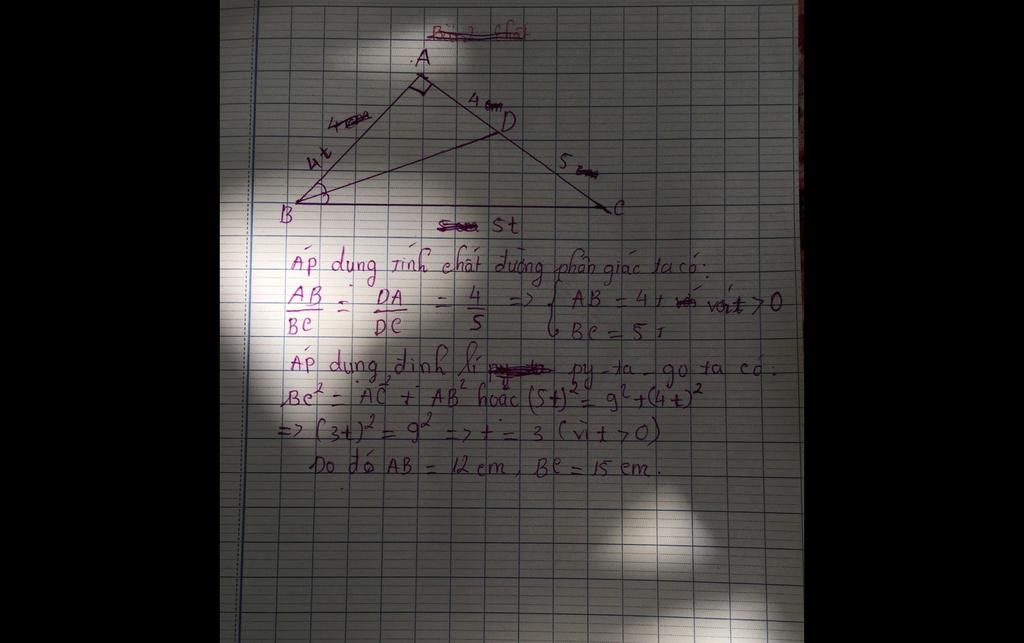 A
4
D
4t
5
B
C
5t
Áp dụng tính chất đường phân giác ta có:
AB/BC = DA/DC = 4/5 => { AB = 4t với t > 0
BC = 5t
Áp dụng định lí py-ta-go ta có:
BC² = AC² + AB² hoặc (5t)² = 9² + (4t)²
=> (3t)² = 9² => t = 3 (vì t > 0)
Do đó AB = 12 cm, BC = 15 cm.